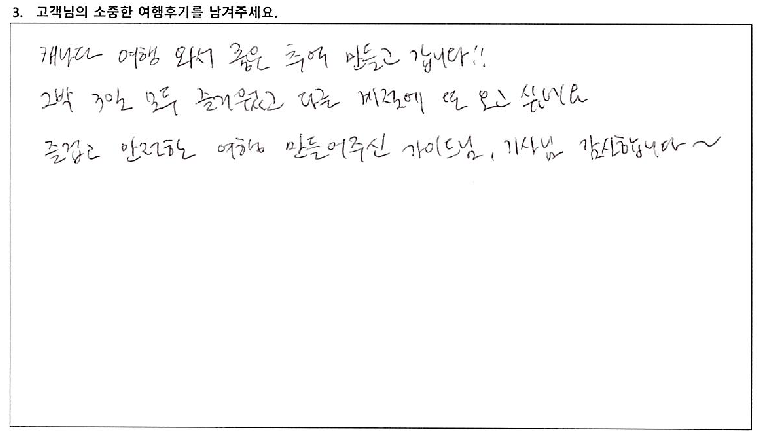 3. 고객님의 소중한 여행후기를 남겨주세요.
캐나다 여행 와서 좋은 추억 만들고 갑니다!!
2박 3일 모두 즐거웠고 다른 계절에 또 오고 싶네요
즐겁고 안전한 여행 만들어주신 가이드님, 기사님 감사합니다~